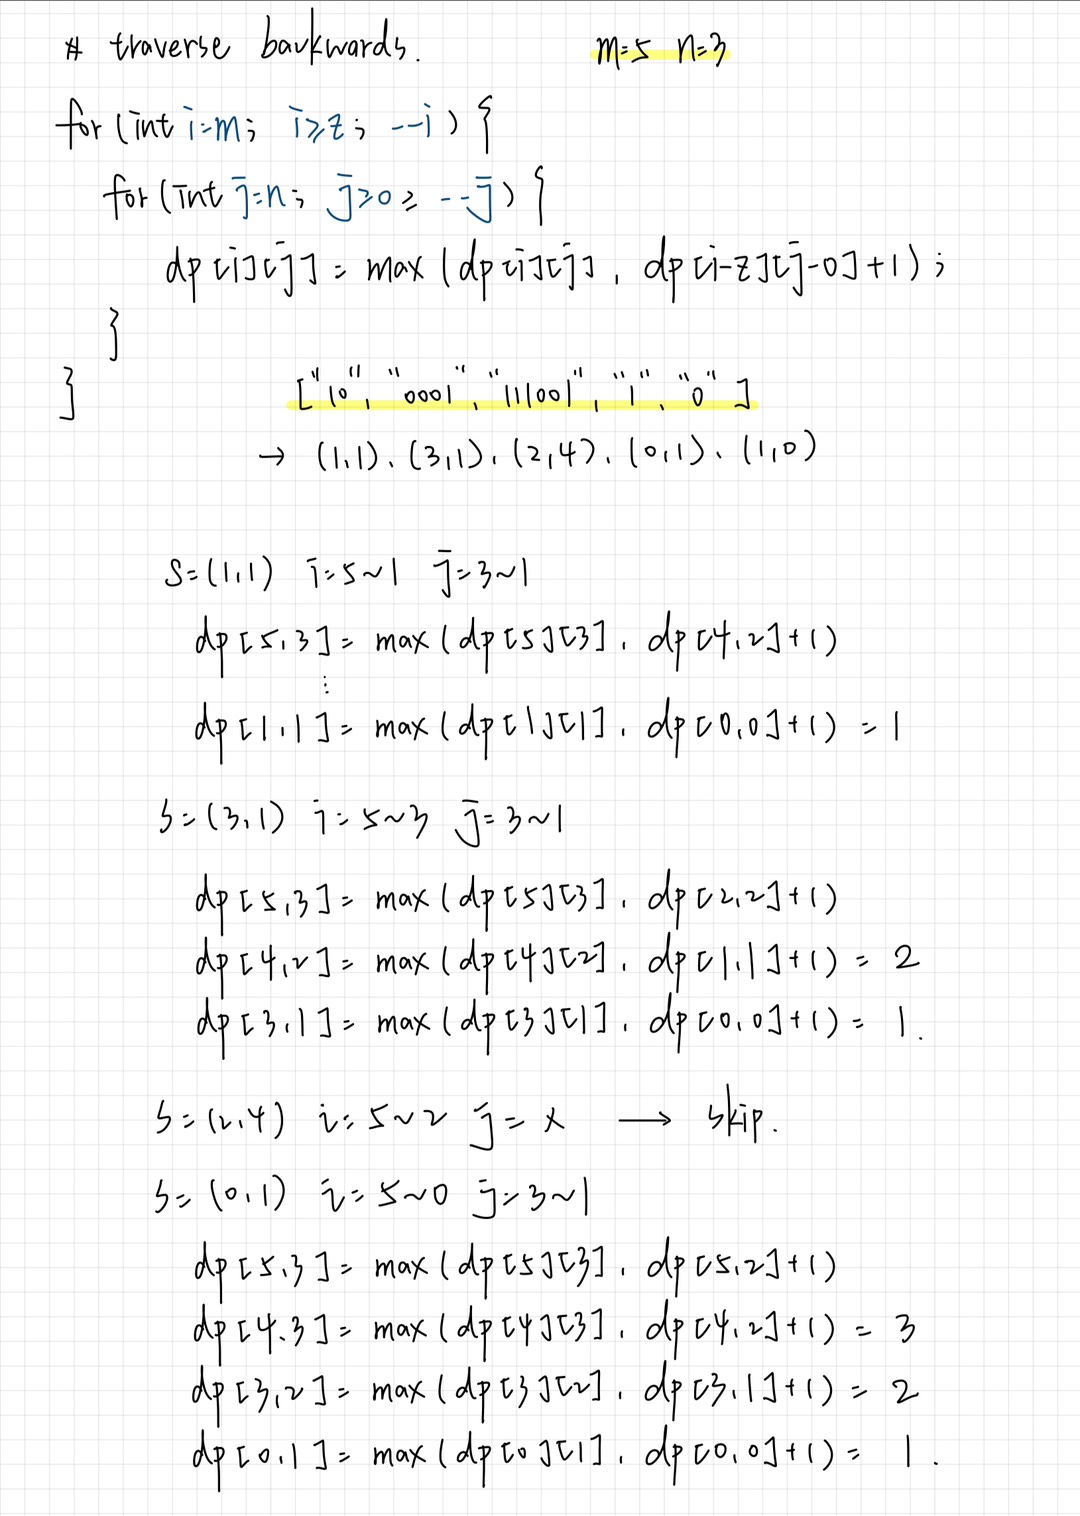 # traverse backwards. m=5 n=3
for (int i=m; i≥z; --i) {
for (int j=n; j≥0; --j) {
dp[i][j] = max(dp[i][j], dp[i-z][j-0]+1);
}
}
["10", "0001", "111001", "1", "0"]
→ (1,1), (3,1), (2,4), (0,1), (1,0)
S=(1,1) i=5~1 j=3~1
dp[5,3] = max(dp[5][3], dp[4,2]+1)
⋮
dp[1,1] = max(dp[1][1], dp[0,0]+1) = 1
S=(3,1) i=5~3 j=3~1
dp[5,3] = max(dp[5][3], dp[2,2]+1)
dp[4,2] = max(dp[4][2], dp[1,1]+1) = 2
dp[3,1] = max(dp[3][1], dp[0,0]+1) = 1.
S=(2,4) i=5~2 j=x → skip.
S=(0,1) i=5~0 j=3~1
dp[5,3] = max(dp[5][3], dp[5,2]+1)
dp[4,3] = max(dp[4][3], dp[4,2]+1) = 3
dp[3,2] = max(dp[3][2], dp[3,1]+1) = 2
dp[0,1] = max(dp[0][1], dp[0,0]+1) = 1.